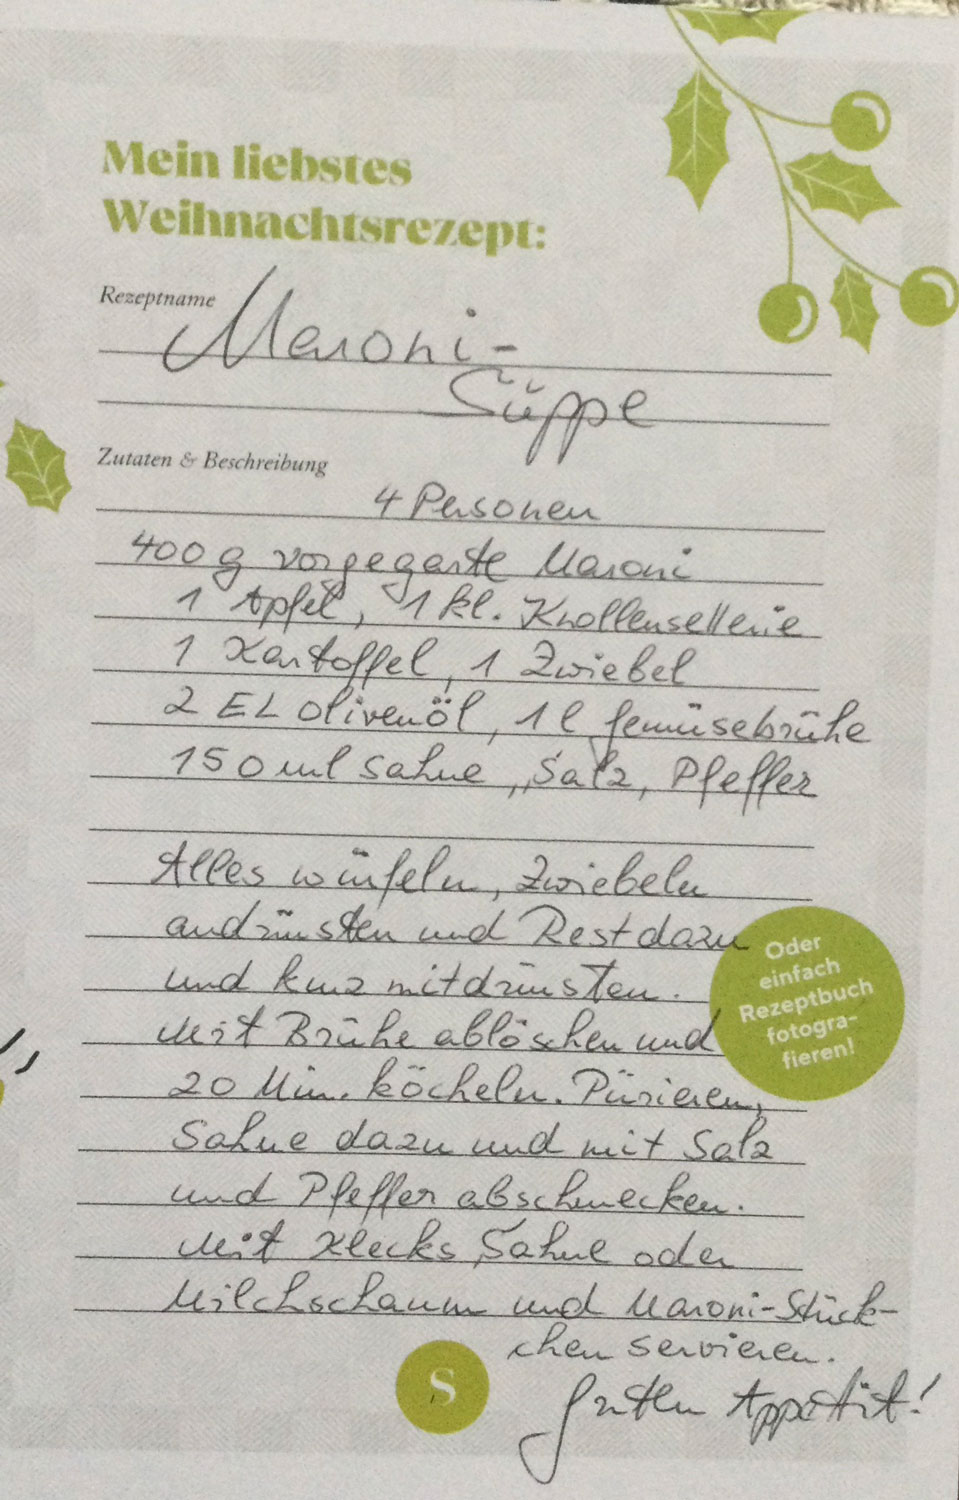 Mein liebstes
Weihnachtsrezept:
Rezeptname
Maroni-
Süppe
Zutaten & Beschreibung
4 Personen
400 g vorgegarte Maroni
1 Apfel, 1 kl. Knollensellerie
1 Kartoffel, 1 Zwiebel
2 EL Olivenöl, 1 l Gemüsebrühe
150 ml Sahne, Salz, Pfeffer
Alles würfeln, Zwiebeln
andünsten und Rest dazu
und kurz mitdünsten.
Mit Brühe ablöschen und
20 Min. köcheln. Pürieren,
Sahne dazu und mit Salz
und Pfeffer abschmecken.
Mit Klecks Sahne oder
Milchschaum und Maroni-Stück-
chen servieren.
Guten Appetit!
Oder
einfach
Rezeptbuch
fotogra-
fieren!
S